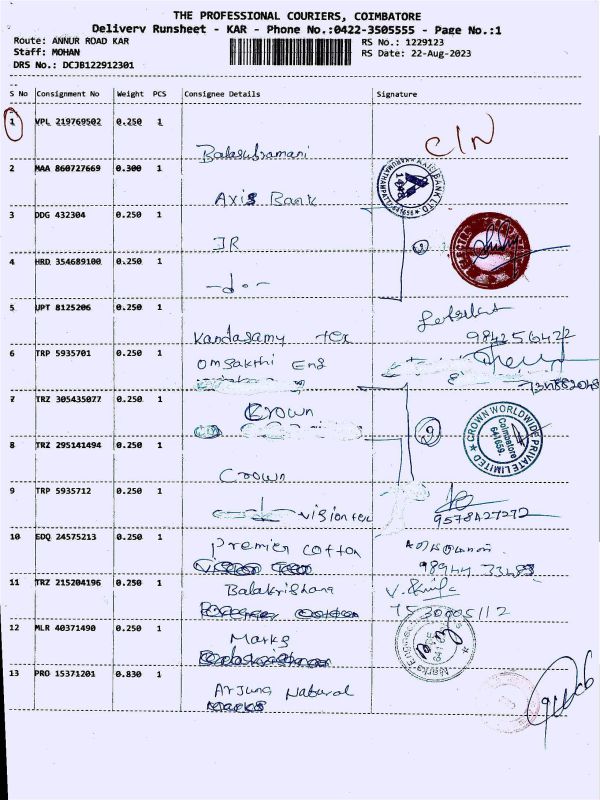 THE PROFESSIONAL COURIERS, COIMBATORE
Delivery Runsheet - KAR - Phone No.:0422-3505555 - Page No.:1
Route: ANNUR ROAD KAR
RS No.: 1229123
Staff: MOHAN
RS Date: 22-Aug-2023
DRS No.: DCJB122912301
S No Consignment No Weight PCS Consignee Details Signature
1 VPL 219769502 0.250 1
Balasubramani
C/N
2 MAA 860727669 0.300 1
Axis Bank
3 DDG 432304 0.250 1
JR
4 HRD 354689100 0.250 1
-do-
5 UPT 8125206 0.250 1
Kandasamy tex
9842256422
6 TRP 5935701 0.250 1
Om Sakthi Eng
7 TRZ 305435077 0.250 1
Crown
CROWN WORLDWIDE PRIVATE LIMITED
Coimbatore
641659.
8 TRZ 295141494 0.250 1
Crown
9 TRP 5935712 0.250 1
vision tex
9578427272
10 EDQ 24575213 0.250 1
Premier Cotton
98944 33488
11 TRZ 215204196 0.250 1
Balakrishana
7530005112
12 MLR 40371490 0.250 1
Marks
13 PRO 15371201 0.830 1
Arjuna Natural